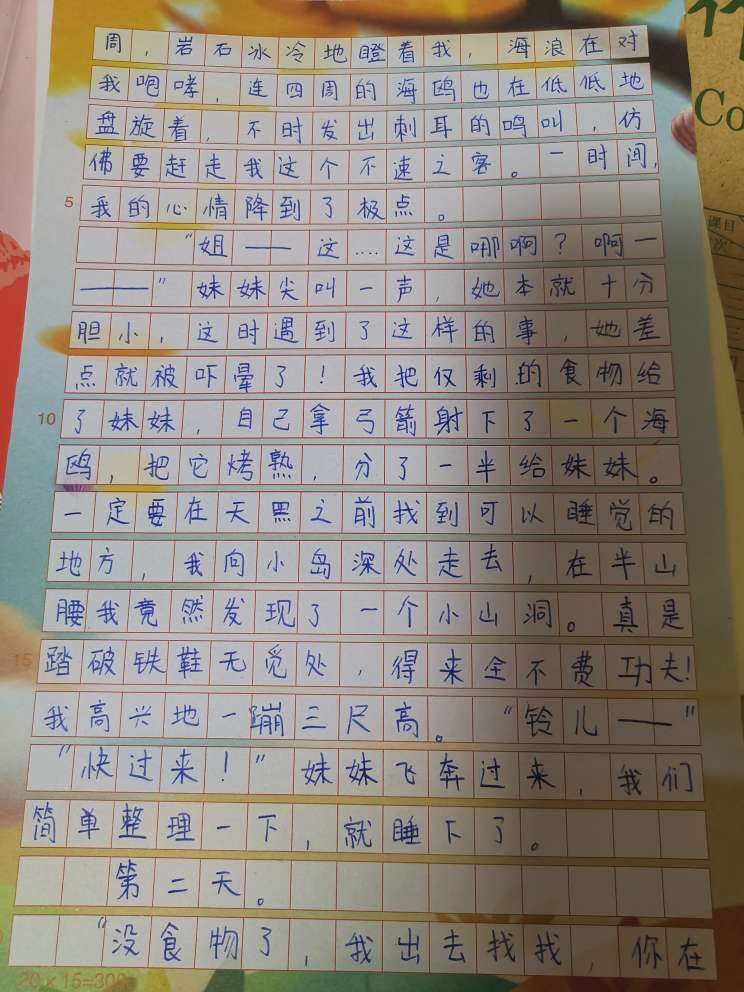 周，岩石冰冷地瞪着我，海浪在对
我咆哮，连四周的海鸥也在低低地
盘旋着，不时发出刺耳的鸣叫，仿
佛要赶走我这个不速之客。一时间，
5 我的心情降到了极点。
“姐——这……这是哪啊？啊一
———”妹妹尖叫一声，她本就十分
胆小，这时遇到了这样的事，她差
点就被吓晕了！我把仅剩的食物给
10 了妹妹，自己拿弓箭射下了一个海
鸥，把它烤熟，分了一半给妹妹。
一定要在天黑之前找到可以睡觉的
地方，我向小岛深处走去，在半山
腰我竟然发现了一个小山洞。真是
15 踏破铁鞋无觅处，得来全不费功夫！
我高兴地一蹦三尺高。“铃儿——”
“快过来！”妹妹飞奔过来，我们
简单整理一下，就睡下了。
第二天。
“没食物了，我出去找找，你在
20×15=300
Co
课目
次